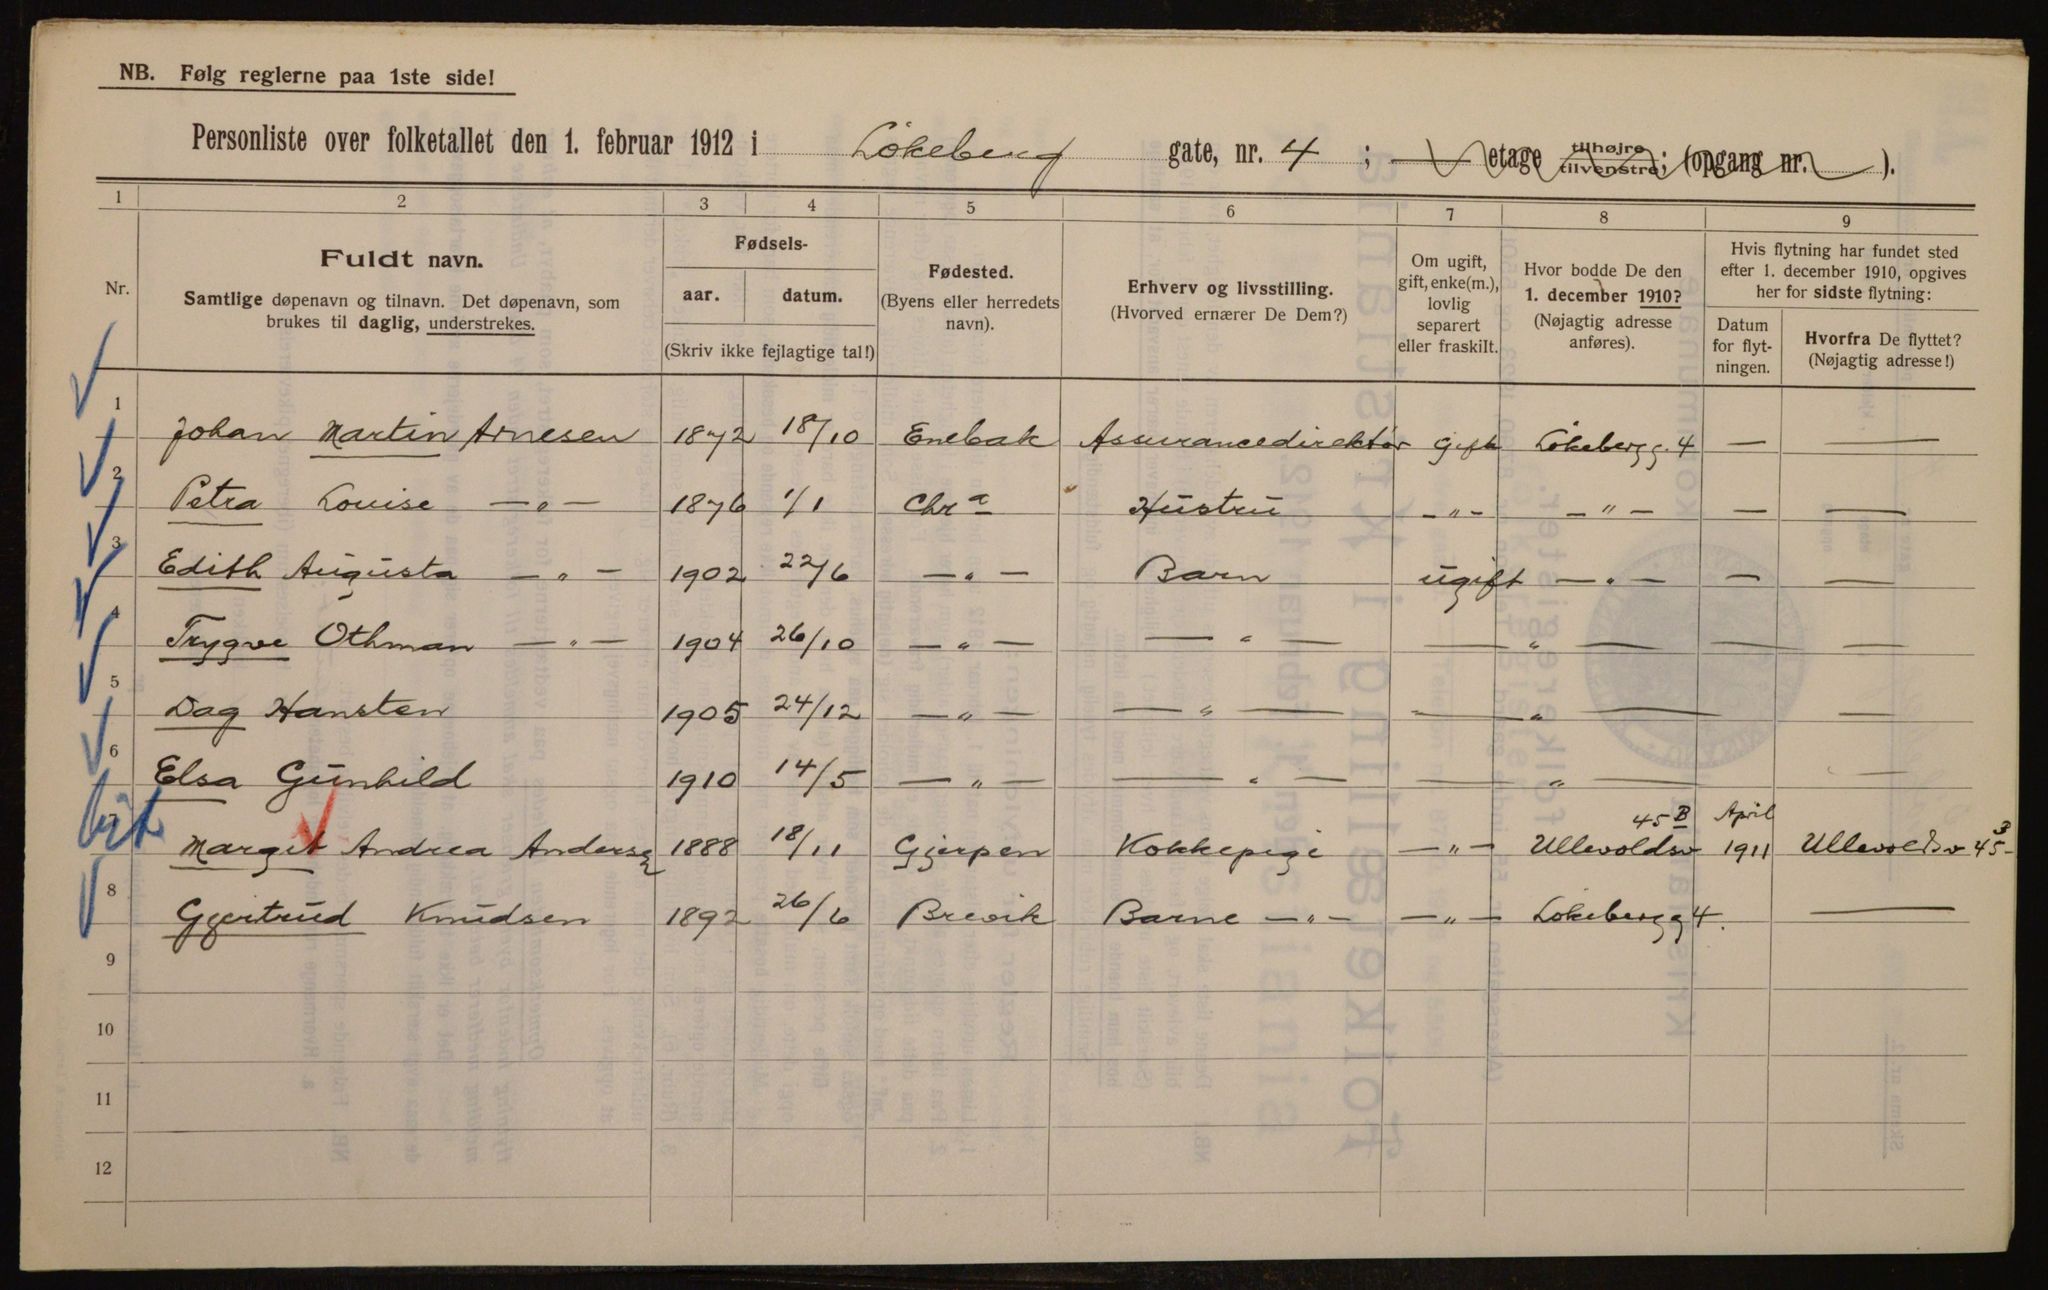 NB. Følg reglerne paa 1ste side!
Personliste over folketallet den 1. februar 1912 i Løkeberg gate, nr. 4 ; etage tilhøjre tilvenstre; (opgang nr. ).
1 2 3 4 5 6 7 8 9
Nr.
Fuldt navn.
Samtlige døpenavn og tilnavn. Det døpenavn, som
brukes til daglig, understrekes.
Fødsels-
aar. datum.
(Skriv ikke fejlagtige tal!)
Fødested.
(Byens eller herredets
navn).
Erhverv og livsstilling.
(Hvorved ernærer De Dem?)
Om ugift,
gift, enke(m.),
lovlig
separert
eller fraskilt.
Hvor bodde De den
1. december 1910?
(Nøjagtig adresse
anføres).
Hvis flytning har fundet sted
efter 1. december 1910, opgives
her for sidste flytning:
Datum
for flyt-
ningen.
Hvorfra De flyttet?
(Nøjagtig adresse!)
1 Johan Martin Arnesen 1872 18/10 Enebak Assurancedirektør Gift Løkebergg. 4 — —
2 Petra Louise —„— 1876 1/1 Chra Hustru —„— —„— — —
3 Edith Augusta —„— 1902 22/6 —„— Barn ugift —„— — —
4 Trygve Othman —„— 1904 26/10 —„— —„— — „ — — —
5 Dag Hansten 1905 24/12 —„— —„— — „ — —
6 Elsa Gunhild 1910 14/5 —„— —„— — „ — —
7 Margit Andrea Andersen 1888 18/11 Gjerpen Kokkepige —„— Ullevoldsv 45 B April 1911 Ullevoldsv 45 B
8 Gjertrud Knudsen 1892 26/6 Brevik Barne —„— —„— Løkebergg 4. —
9
10
11
12